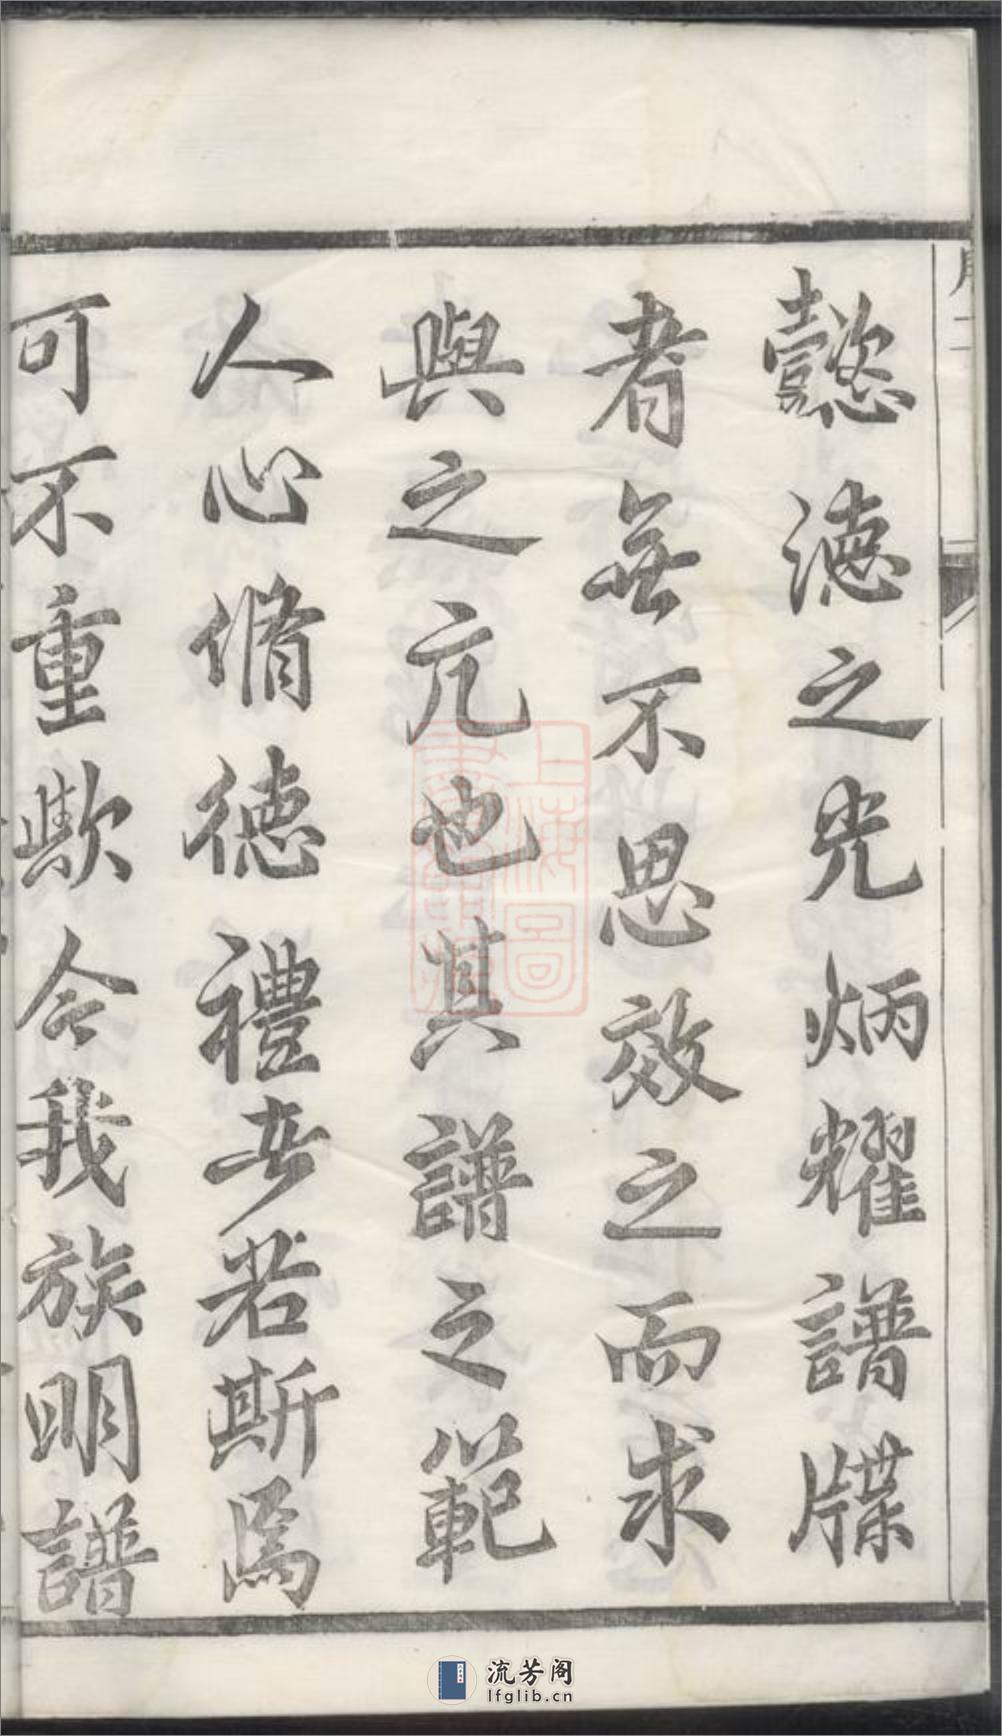 懿德之光炳耀譜牒
者無不思效之而求
與之亢也其譜之範
人心脩德禮者若斯焉
可不重歟今我族明譜
上海圖
流芳阁
lfglib.cn